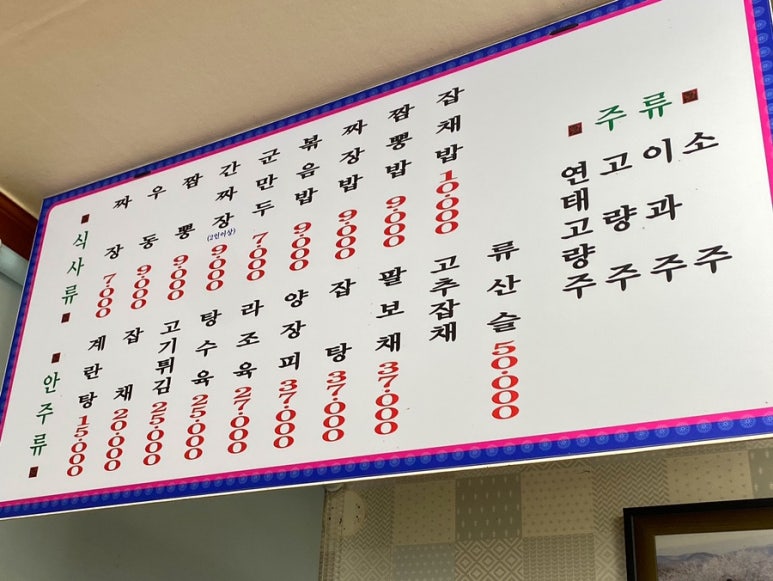 식사류
짜장 7.000
우동 9.000
짬뽕 9.000
간짜장 (2인이상) 9.000
군만두 7.000
볶음밥 9.000
짜장밥 9.000
짬뽕밥 9.000
잡채밥 10.000
안주류
계란탕 15.000
잡채 20.000
고기튀김 25.000
탕수육 25.000
라조육 27.000
양장피 37.000
잡탕 37.000
팔보채 37.000
고추잡채
류산슬 50.000
주류
연태고량주
고량주
이과주
소주